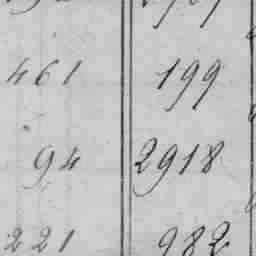 461 199
94 2918
221 982